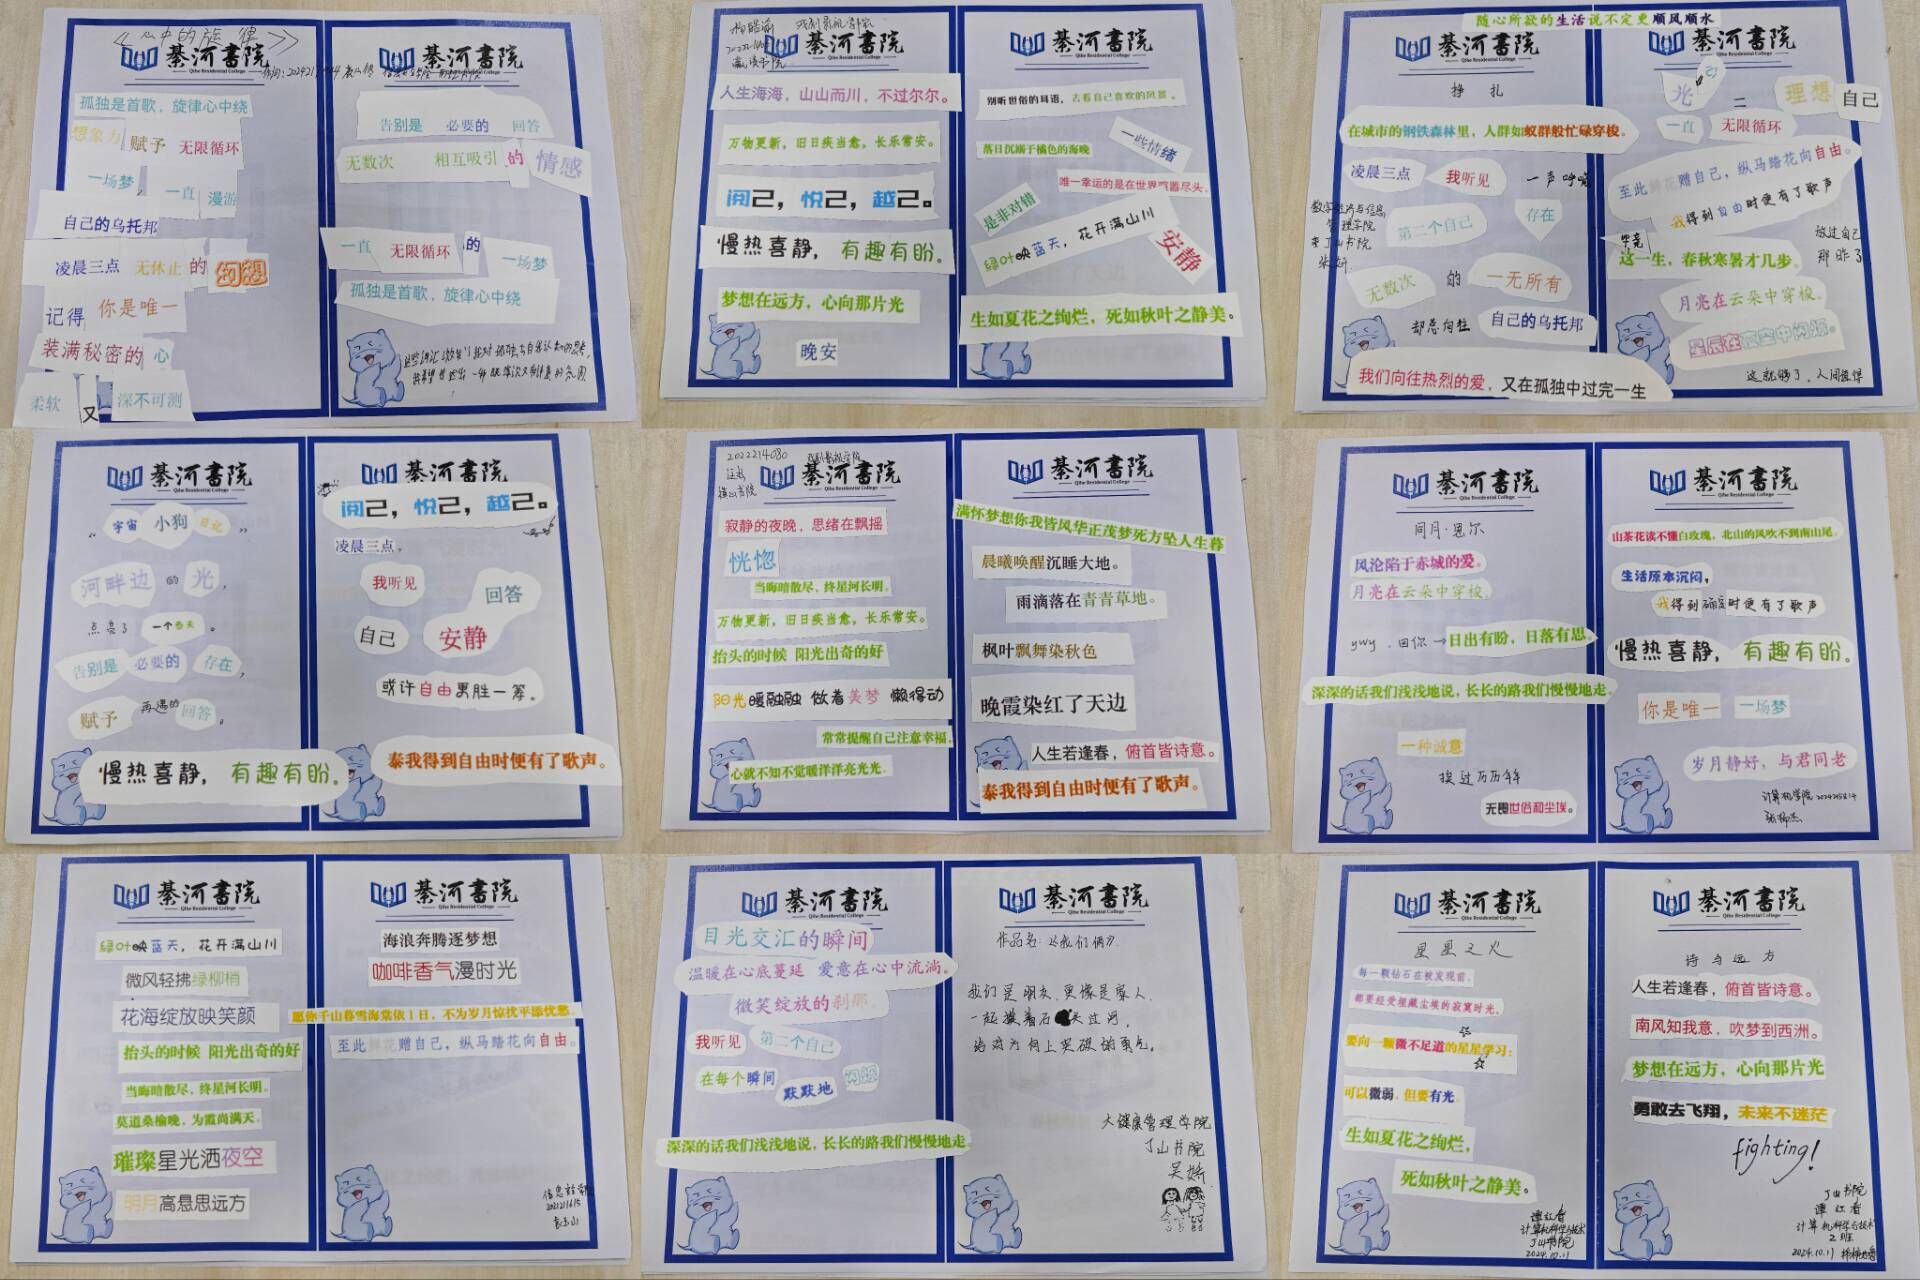 《心中的旋律》
綦河書院
Qihe Residential College
孤独是首歌，旋律心中绕
想象力 赋予 无限循环
一场梦， 一直 漫游
自己的乌托邦
凌晨三点 无休止 的 幻想
记得 你是唯一
装满秘密的 心
柔软 又 深不可测
綦河書院
Qihe Residential College
告别是 必要的 回答
无数次 相互吸引 的 情感
一直 无限循环 的 一场梦
孤独是首歌，旋律心中绕
綦河書院
人生海海，山山而川，不过尔尔。
万物更新，旧日疾当愈，长乐常安。
阅己，悦己，越己。
慢热喜静，有趣有盼。
梦想在远方，心向那片光
晚安
綦河書院
Qihe Residential College
别听世俗的耳语，去看自己喜欢的风景。
一些情绪
落日沉溺于橘色的海晚
唯一幸运的是在世界喧嚣尽头，
是非对错
绿叶映蓝天，花开满山川
安静
生如夏花之绚烂，死如秋叶之静美。
随心所欲的生活说不定更顺风顺水
綦河書院
Qihe Residential College
挣扎
在城市的钢铁森林里，人群如蚁群般忙碌穿梭。
凌晨三点 我听见 一声呼喊
数字经济与信息
管理学院
第二个自己 存在
无数次 的 一无所有
却总向往 自己的乌托邦
我们向往热烈的爱，又在孤独中过完一生
綦河書院
Qihe Residential College
光 二 理想 自己
一直 无限循环
至此鲜花赠自己，纵马踏花向自由。
我得到自由时便有了歌声
毕竟
放过自己
这一生，春秋寒暑才几步。
那昨了
月亮在云朵中穿梭。
星辰在夜空中闪烁。
这就够了，人间值得
綦河書院
Qihe Residential College
“宇宙 小狗 日记”
河畔边 的 光，
点亮了 一个春天 。
告别是 必要的 存在，
赋予 再遇的 回答。
慢热喜静，有趣有盼。
綦河書院
阅己，悦己，越己。
凌晨三点，
我听见 回答
自己 安静
或许自由更胜一筹。
泰我得到自由时便有了歌声。
2022214080 戏剧影视学院
綦河書院
Qihe Residential College
寂静的夜晚，思绪在飘摇
恍惚
当晦暗散尽，终星河长明。
万物更新，旧日疾当愈，长乐常安。
抬头的时候 阳光出奇的好
阳光暖融融 做着美梦 懒得动
常常提醒自己注意幸福。
心就不知不觉暖洋洋亮光光。
綦河書院
Qihe Residential College
满怀梦想你我皆风华正茂梦死方坠人生暮
晨曦唤醒沉睡大地。
雨滴落在青青草地。
枫叶飘舞染秋色
晚霞染红了天边
人生若逢春，俯首皆诗意。
泰我得到自由时便有了歌声。
綦河書院
Qihe Residential College
同月·恩尔
风沦陷于赤城的爱。
月亮在云朵中穿梭。
ywy．因你→日出有盼，日落有思。
深深的话我们浅浅地说，长长的路我们慢慢地走。
一种诚意
挨过历历年
无畏世俗和尘埃。
綦河書院
Qihe Residential College
山茶花读不懂白玫瑰，北山的风吹不到南山尾。
生活原本沉闷，
我得到 时便有了歌声
慢热喜静，有趣有盼。
你是唯一 一场梦
岁月静好，与君同老
计算机学院
綦河書院
Qihe Residential College
绿叶映蓝天，花开满山川
微风轻拂绿柳梢
花海绽放映笑颜
抬头的时候 阳光出奇的好
当晦暗散尽，终星河长明。
莫道桑榆晚，为霞尚满天。
璀璨星光洒夜空
明月高悬思远方
綦河書院
Qihe Residential College
海浪奔腾逐梦想
咖啡香气漫时光
愿你千山暮雪海棠依丨日，不为岁月惊扰平添忧愁。
至此鲜花赠自己，纵马踏花向自由。
綦河書院
Qihe Residential College
目光交汇的瞬间
温暖在心底蔓延 爱意在心中流淌。
微笑绽放的刹那。
我听见 第二个自己
在每个瞬间 默默地 闪烁
深深的话我们浅浅地说，长长的路我们慢慢地走。
綦河書院
Qihe Residential College
作品名：
我们是朋友，更像是家人，
一起摸着石 头过河，
大健康管理学院
丁山书院
吴娇
綦河書院
Qihe Residential College
星星之火
每一颗钻石在被发现前，
都要经受埋藏尘埃的寂寞时光。
要向一颗微不足道的星星学习：
可以微弱，但要有光。
生如夏花之绚烂，
死如秋叶之静美。
谭红香
计算机科学与技术
丁山书院
2024.10.11
綦河書院
Qihe Residential College
诗与远方
人生若逢春，俯首皆诗意。
南风知我意，吹梦到西洲。
梦想在远方，心向那片光
勇敢去飞翔，未来不迷茫
fighting!
丁山书院
谭红香
计算机科学与技术
2班
2024.10.11